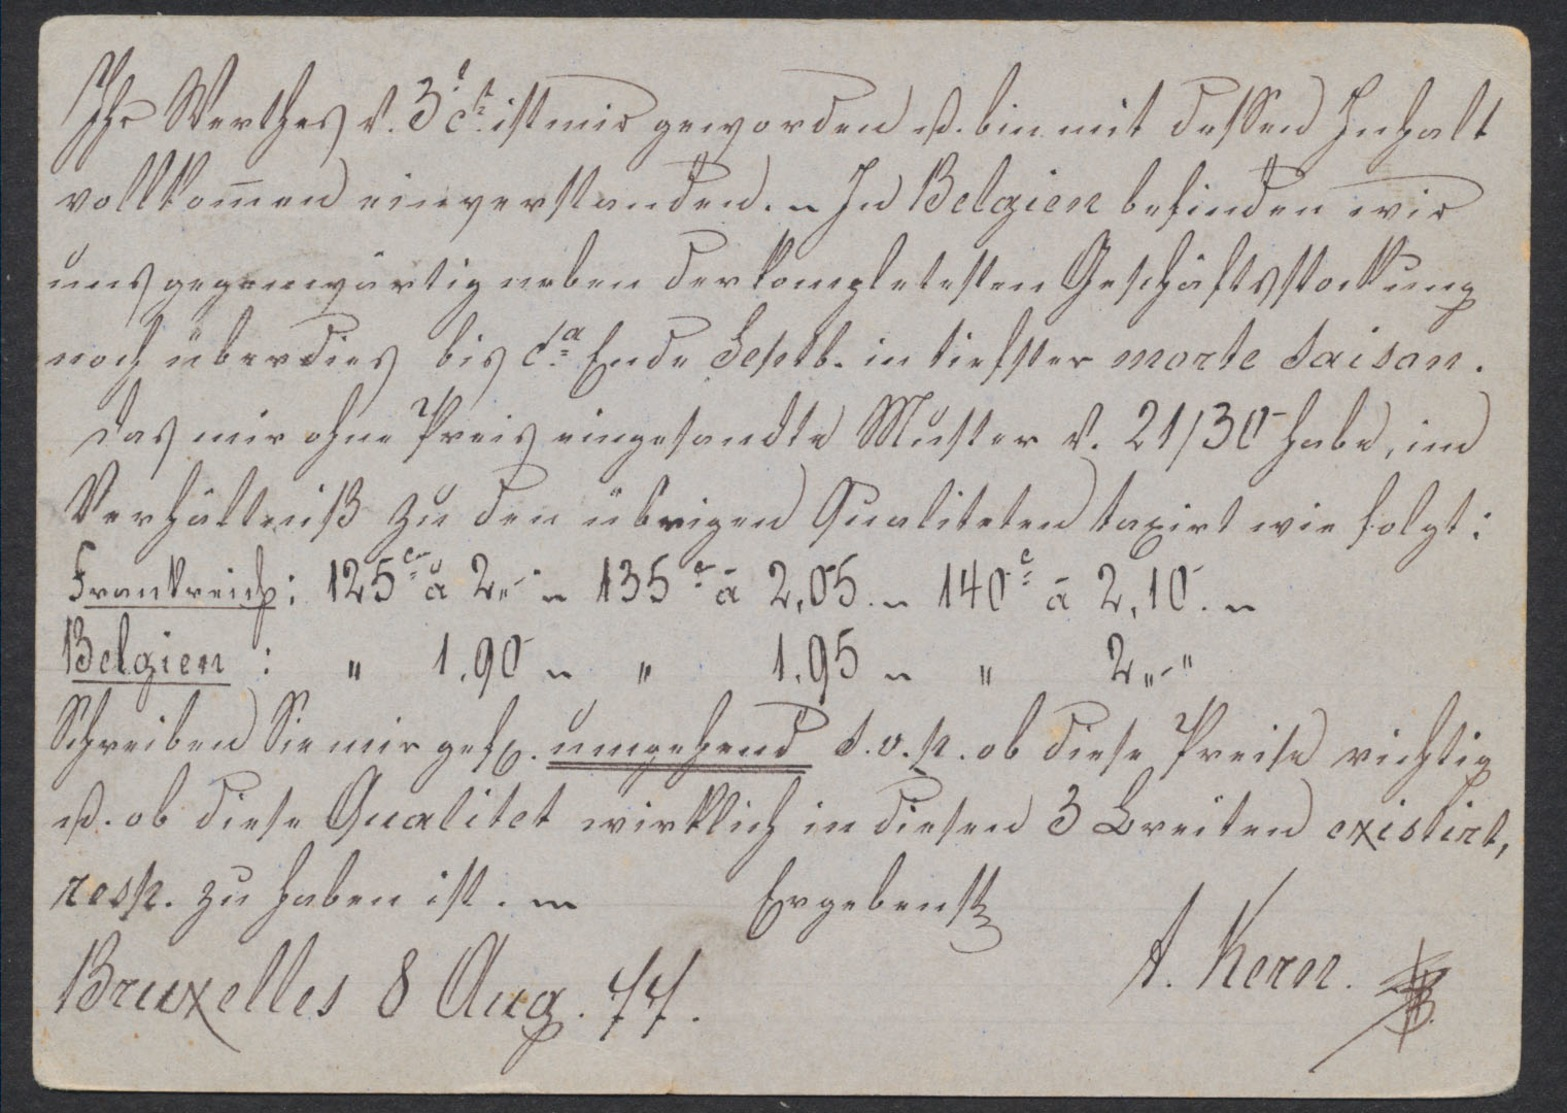 Ihr Werthes v. 3. ct. ist mir geworden u. bin mit dessen Inhalt
vollkom̅en einverstanden. – In Belgien befinden wir
uns gegenwärtig neben der kompletesten Geschäftsstockung
noch überdies bis ca. Ende Septb. in tiefster morte saison.
Das mir ohne Preis eingesandte Muster v. 21/30 habe, im
Verhältniß zu den übrigen Qualiteten taxirt wie folgt:
Frankreich: 125c. à 2,- – 135c. à 2,05. – 140c. à 2,10. –
Belgien : " 1,90 – " 1,95 – " 2,-"
Schreiben Sie mir gefl. umgehend s.v.p. ob diese Preise richtig
u. ob diese Qualitet wirklich in diesen 3 Breiten existirt,
resp. zu haben ist. –
Ergebenst
Bruxelles 8 Aug. 77.
A. Kern.